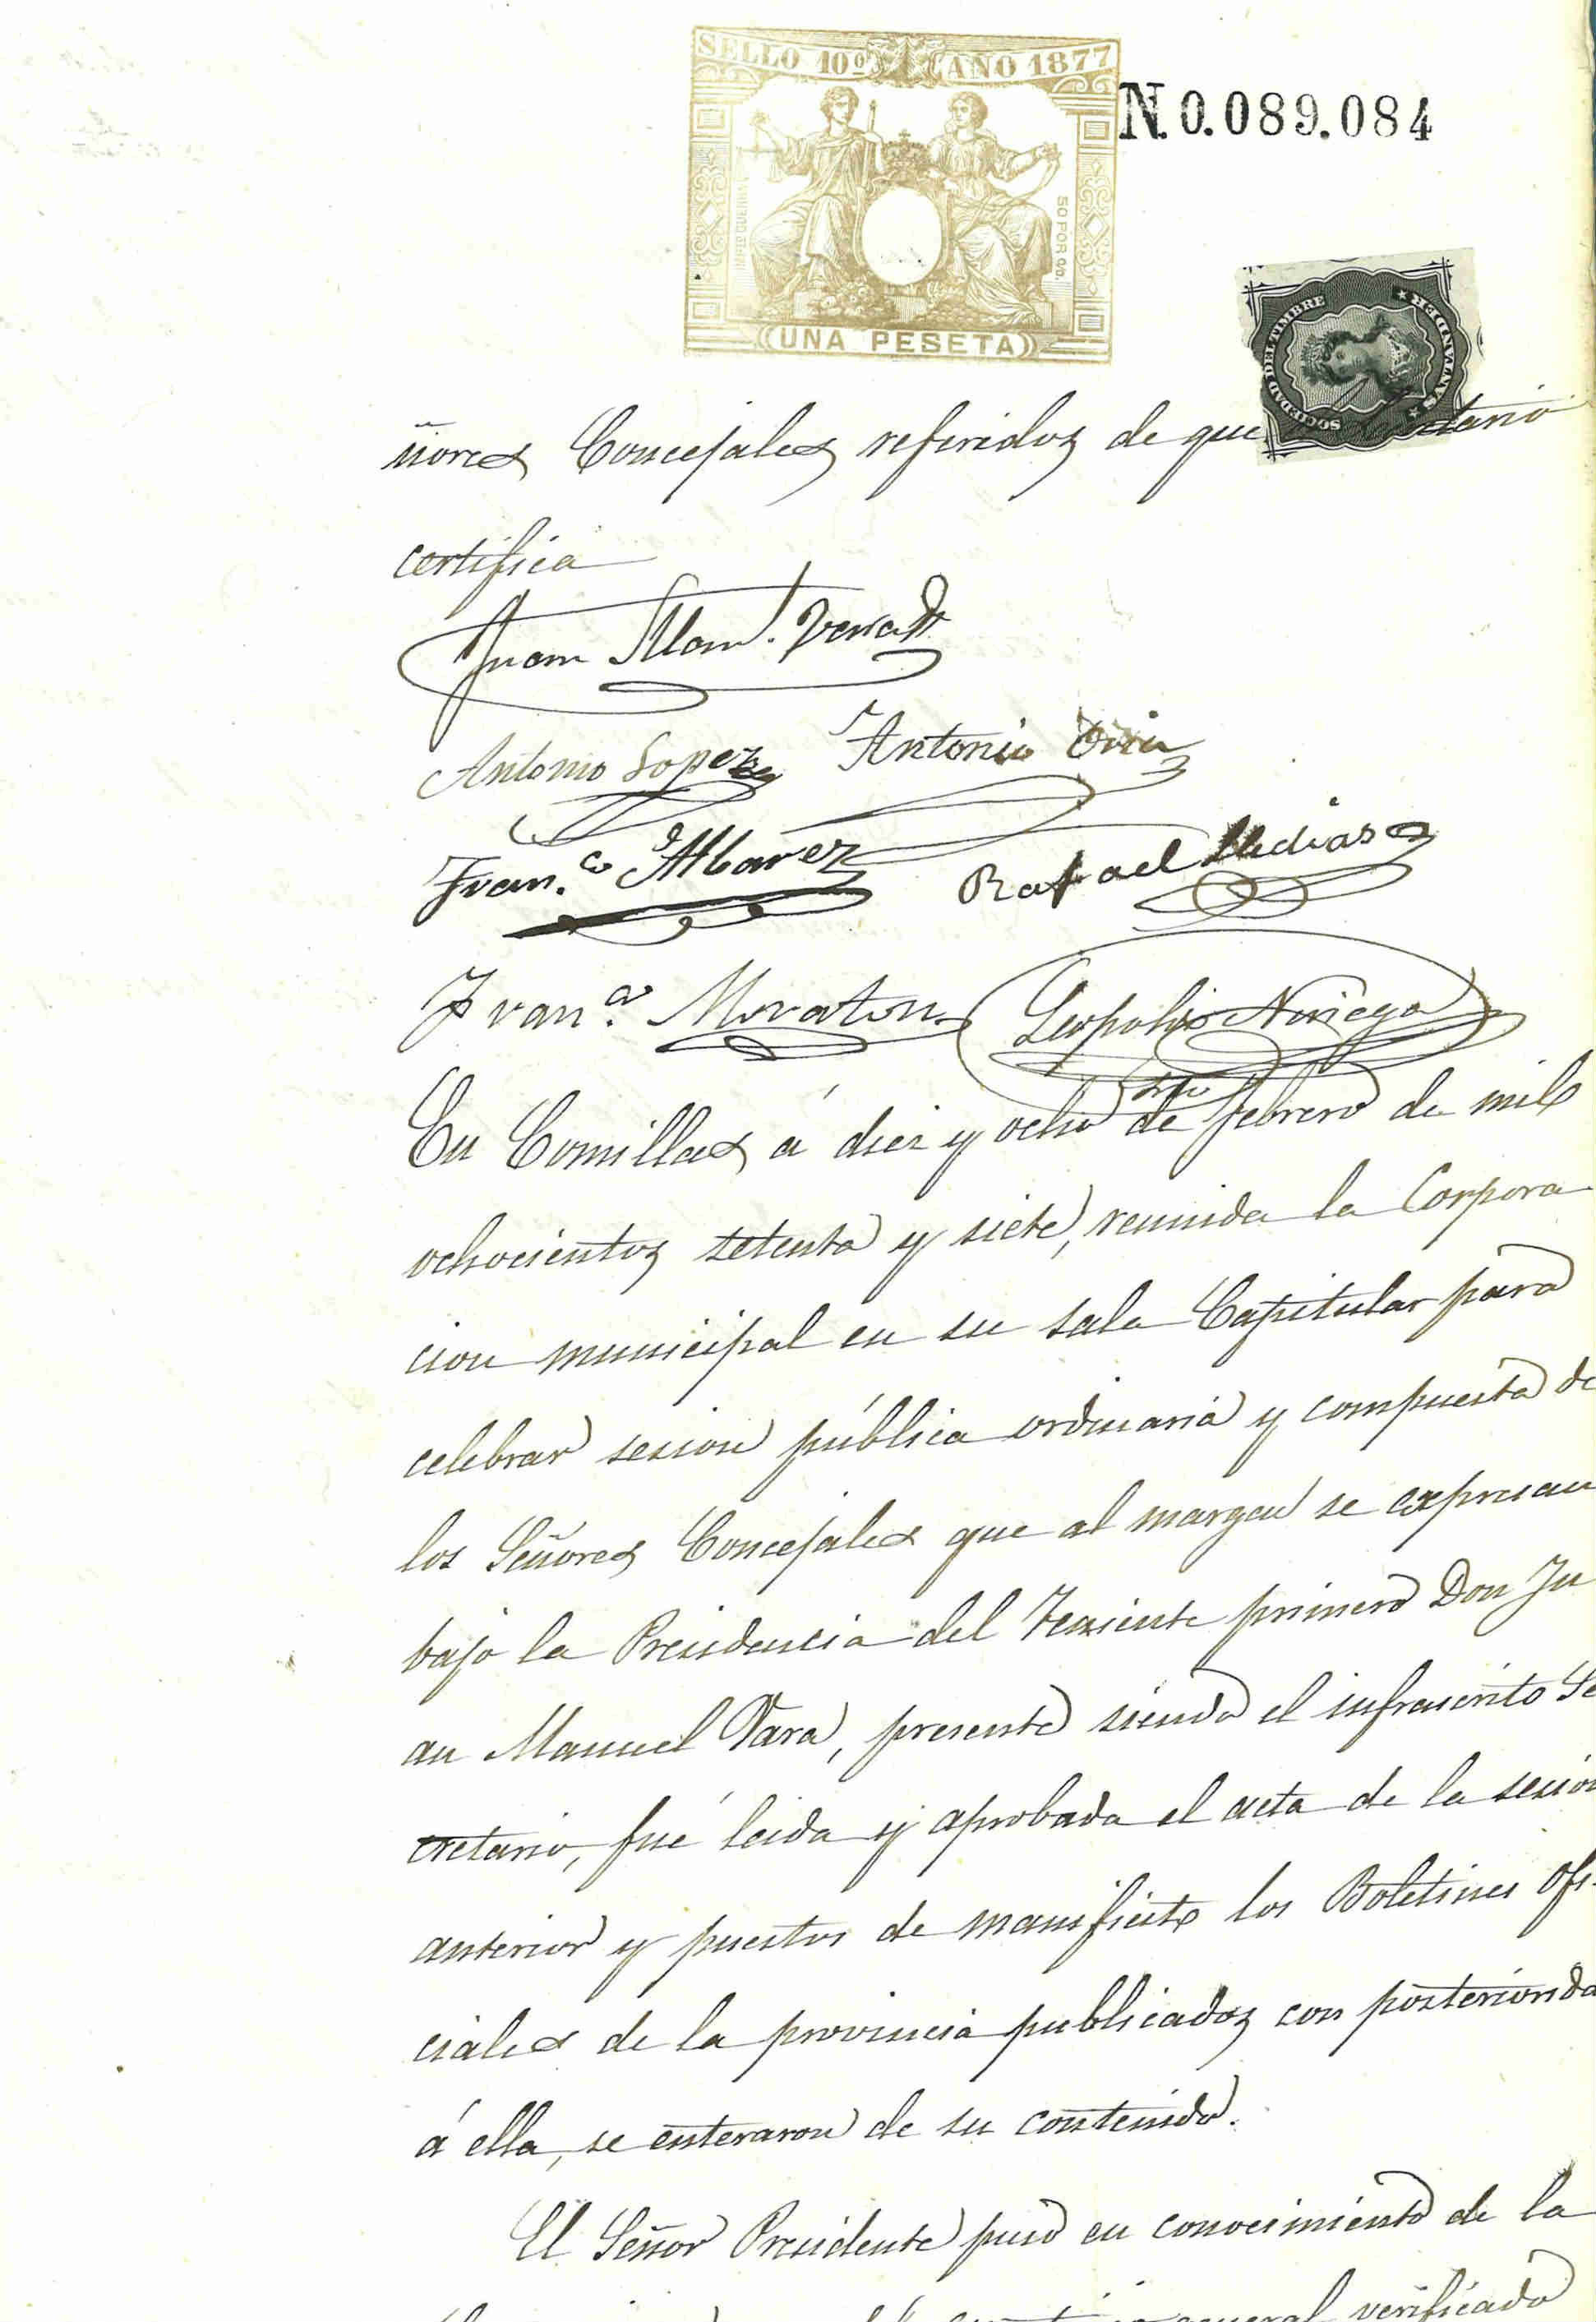 SELLO 10º AÑO 1877
N.0.089.084
IMPTO GUERRA
50 POR 00.
UNA PESETA
SOCIEDAD DEL TIMBRE
★ SANTANDER ★
ñores Concejales referidos de que tario
certifica
Juan Man.l Vara
Antonio Lopez Antonio
Fran.co Alvarez Rafael
Fran.co Moraton Leopoldo Noriega
Srio
En Comillas á diez y ocho de febrero de mil
ochocientos setenta y siete, reunida la Corpora
cion municipal en su sala Capitular para
celebrar sesion pública ordinaria y compuesta de
los Señores Concejales que al margen se expresan
bajo la Presidencia del Teniente primero Don Ju
an Manuel Vara, presente siendo el infrascrito Se
cretario, fué leida y aprobada el acta de la sesión
anterior y puestos de manifiesto los Boletines Ofi-
ciales de la provincia publicados con posteriorida
á ella, se enteraron de su contenido.
El Señor Presidente puso en conocimiento de la
general verificado